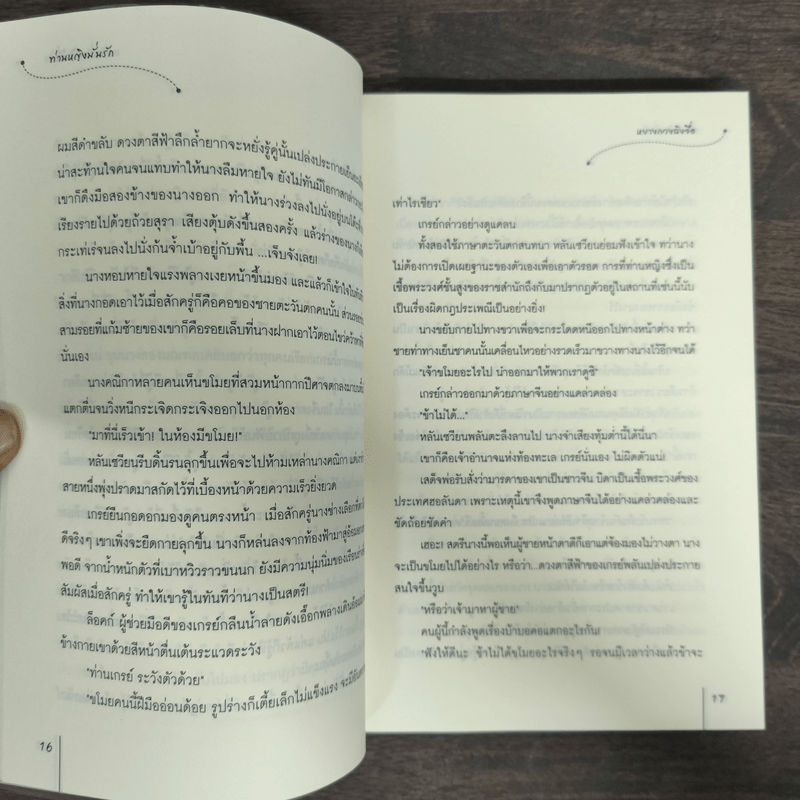 ท่านหญิงมั่นรัก
ผมสีดำขลับ ดวงตาสีฟ้าลึกล้ำยากจะหยั่งรู้คู่นั้นเปล่งประกายเย็น
น่าสะท้านใจคนจนแทบทำให้นางลืมหายใจ ยังไม่ทันมีโอกาส
เขาก็ดึงมือสองข้างของนางออก ทำให้นางร่วงลงไปนั่งอยู่บนโต๊ะ
เรียงรายไปด้วยถ้วยสุรา เสียงตุ้บดังขึ้นสองครั้ง แล้วร่างของนาง
กระเท่เร่จนลงไปนั่งก้นจ้ำเบ้าอยู่กับพื้น ...เจ็บจังเลย!
นางหอบหายใจแรงพลางเงยหน้าขึ้นมอง และแล้วก็เข้าใจใน
สิ่งที่นางกอดเอาไว้เมื่อสักครู่ก็คือคอของชายตะวันตกคนนั้น
สามรอยที่แก้มซ้ายของเขาก็คือรอยเล็บที่นางฝากเอาไว้ตอนไขว่คว้า
นั่นเอง
นางคณิกาหลายคนเห็นขโมยที่สวมหน้ากากปีศาจตกลงมา
แตกตื่นจนวิ่งหนีกระเจิดกระเจิงออกไปนอกห้อง
"มาที่นี่เร็วเข้า! ในห้องมีขโมย!"
หลันเซวียนรีบดิ้นรนลุกขึ้นเพื่อจะไปห้ามเหล่านางคณิกา
สายหนึ่งพุ่งปราดมาสกัดไว้ที่เบื้องหน้าด้วยความเร็วยิ่งยวด
เกรย์ยืนกอดอกมองดูคนตรงหน้า เมื่อสักครู่นางช่างเลือกที่
ดีจริงๆ เขาเพิ่งจะยืดกายลุกขึ้น นางก็หล่นลงจากท้องฟ้ามาสู่อ้อม
พอดี จากน้ำหนักตัวที่เบาหวิวราวขนนก ยังมีความนุ่มนิ่มของเรือนร่าง
สัมผัสเมื่อสักครู่ ทำให้เขารู้ในทันทีว่านางเป็นสตรี!
ล็อคก์ ผู้ช่วยมือดีของเกรย์กลืนน้ำลายดังเอื๊อกพลางเดิน
ข้างกายเขาด้วยสีหน้าตื่นเต้นระแวดระวัง
"ท่านเกรย์ ระวังตัวด้วย"
"ขโมยคนนี้ฝีมืออ่อนด้อย รูปร่างก็เตี้ยเล็กไม่แข็งแรง
16
หยางกวงฉิงจื่อ
เท่าไรเชียว"
เกรย์กล่าวอย่างดูแคลน
ทั้งสองใช้ภาษาตะวันตกสนทนา หลันเซวียนย่อมฟังเข้าใจ ทว่านาง
ไม่ต้องการเปิดเผยฐานะของตัวเองเพื่อเอาตัวรอด การที่ท่านหญิงซึ่งเป็น
เชื้อพระวงศ์ชั้นสูงของราชสำนักถึงกับมาปรากฏตัวอยู่ในสถานที่เช่นนี้นับ
เป็นเรื่องผิดกฎประเพณีเป็นอย่างยิ่ง!
นางขยับกายไปทางขวาเพื่อจะกระโดดหนีออกไปทางหน้าต่าง ทว่า
ชายท่าทางเย็นชาคนนั้นเคลื่อนไหวอย่างรวดเร็วมาขวางทางนางไว้อีกจนได้
"เจ้าขโมยอะไรไป นำออกมาให้พวกเราดูซิ"
เกรย์กล่าวออกมาด้วยภาษาจีนอย่างแคล่วคล่อง
"ข้าไม่ได้..."
หลันเซวียนพลันตะลึงลานไป นางจำเสียงทุ้มต่ำนี้ได้นี่นา
เขาก็คือเจ้าอำนาจแห่งท้องทะเล เกรย์นั่นเอง ไม่ผิดตัวแน่!
เสด็จพ่อรับสั่งว่ามารดาของเขาเป็นชาวจีน บิดาเป็นเชื้อพระวงศ์ของ
ประเทศฮอลันดา เพราะเหตุนี้เขาจึงพูดภาษาจีนได้อย่างแคล่วคล่องและ
ชัดถ้อยชัดคำ
เฮอะ! สตรีนางนี้พอเห็นผู้ชายหน้าตาดีก็เอาแต่จ้องมองไม่วางตา นาง
จะเป็นขโมยไปได้อย่างไร หรือว่า...ดวงตาสีฟ้าของเกรย์พลันเปล่งประกาย
สนใจขึ้นวูบ
"หรือว่าเจ้ามาหาผู้ชาย"
คนผู้นี้กำลังพูดเรื่องบ้าบอคอแตกอะไรกัน!
"ฟังให้ดีนะ ข้าไม่ได้ขโมยอะไรจริงๆ รอจนมีเวลาว่างแล้วข้าจะ
17